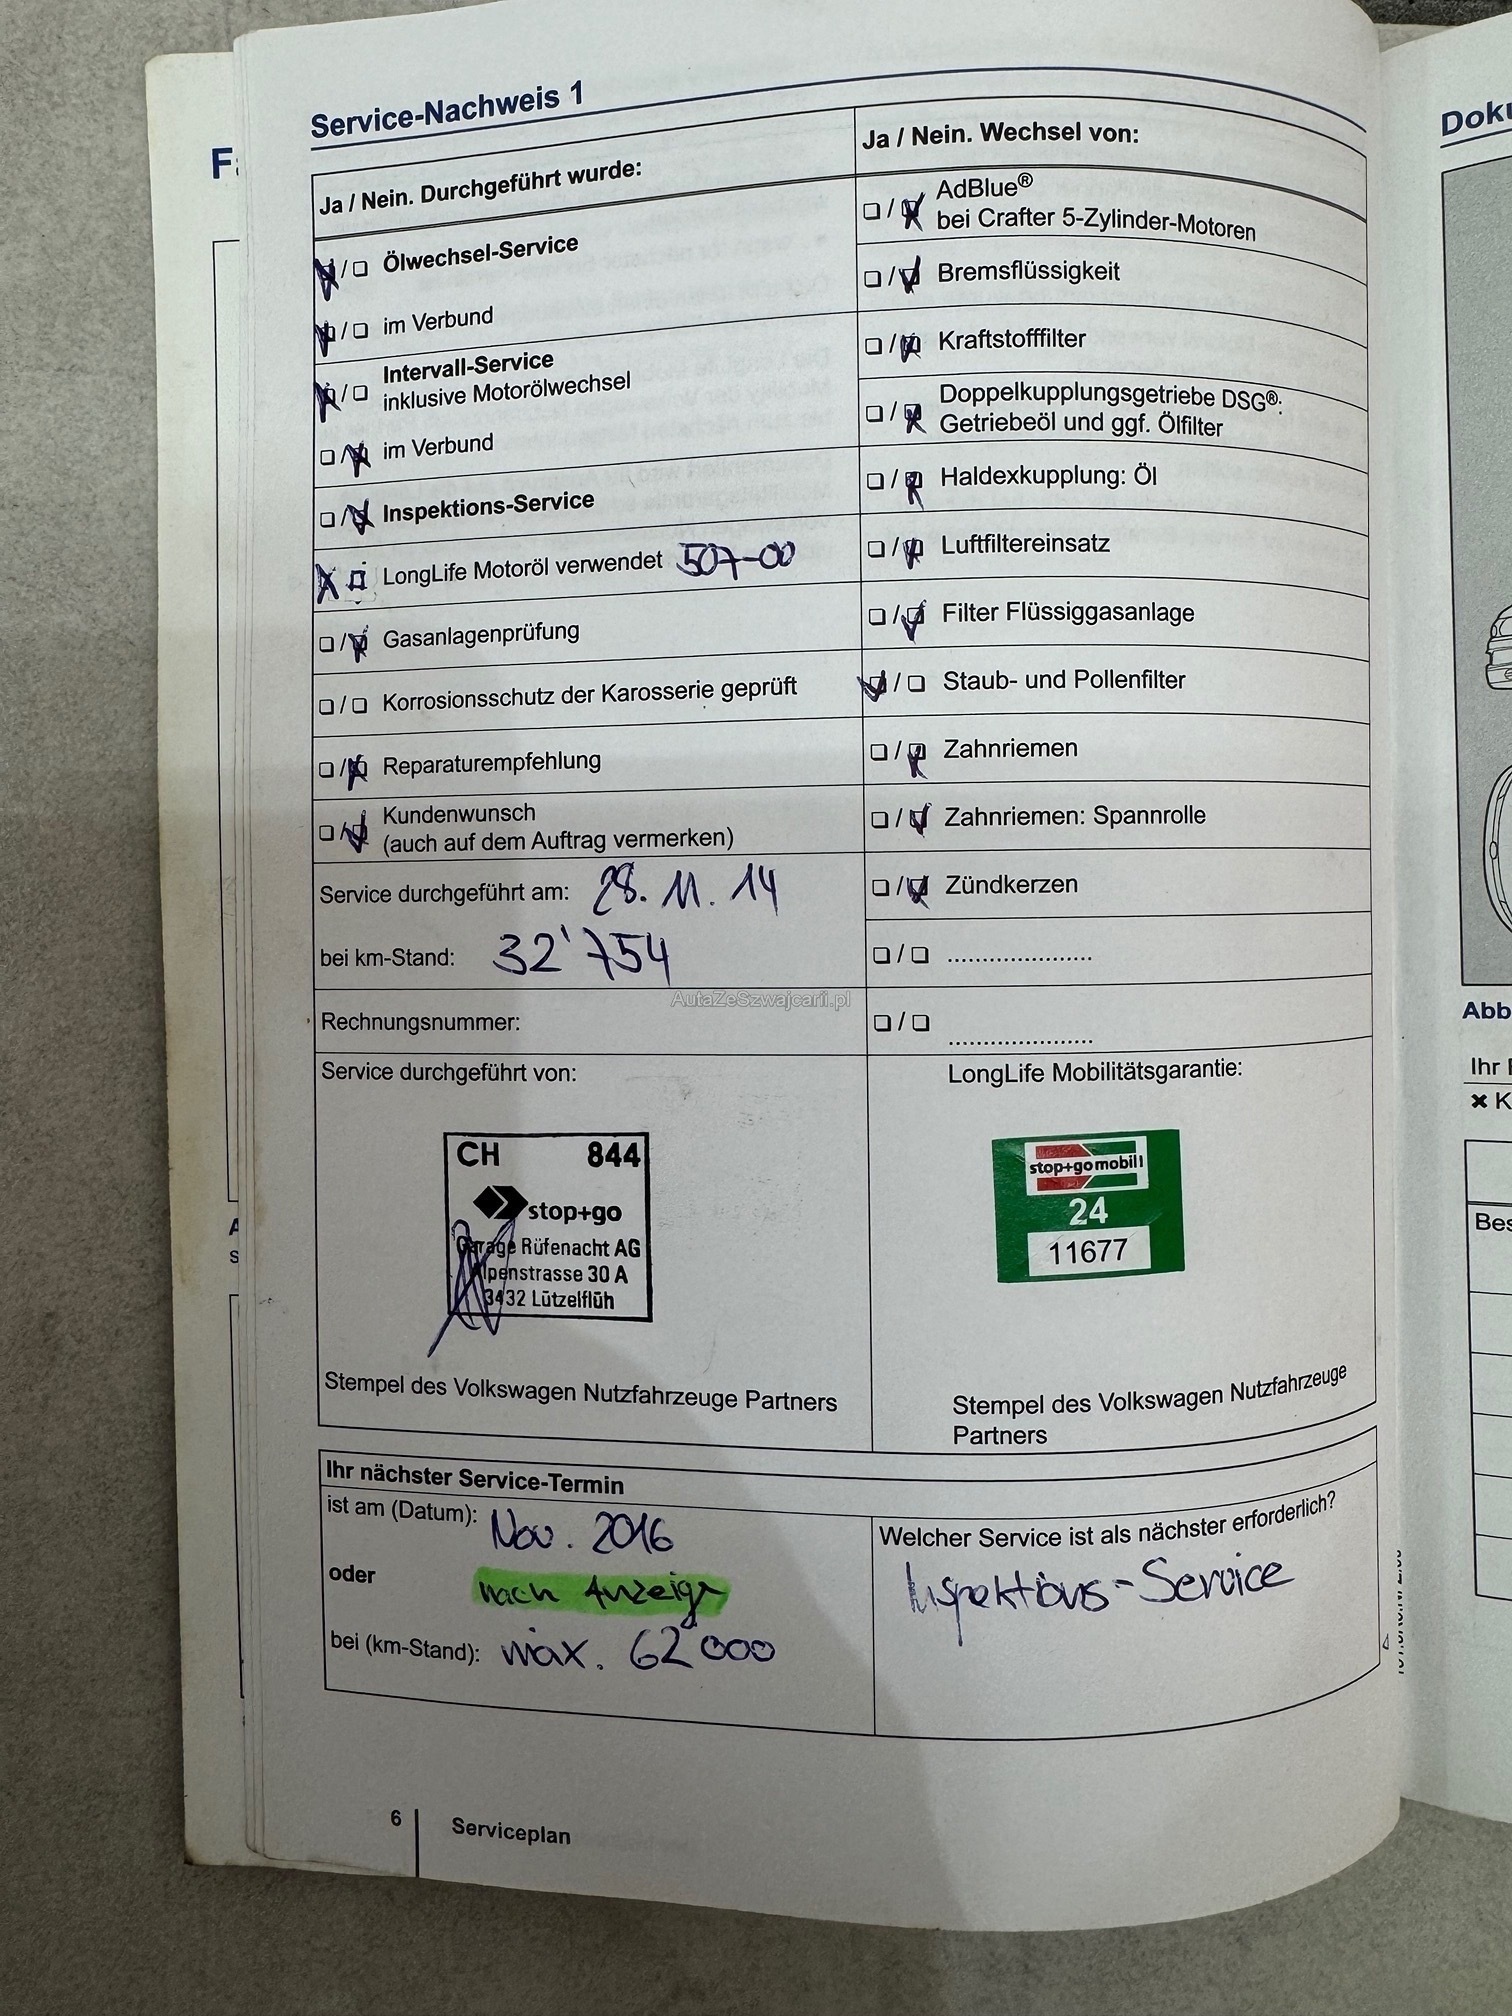 Service-Nachweis 1
Ja / Nein. Durchgeführt wurde:
Ölwechsel-Service
im Verbund
Intervall-Service
inklusive Motorölwechsel
im Verbund
Inspektions-Service
LongLife Motoröl verwendet 507-00
Gasanlagenprüfung
Korrosionsschutz der Karosserie geprüft
Reparaturempfehlung
Kundenwunsch
(auch auf dem Auftrag vermerken)
Service durchgeführt am: 28. 11. 14
bei km-Stand: 32'754
Rechnungsnummer:
Ja / Nein. Wechsel von:
AdBlue®
bei Crafter 5-Zylinder-Motoren
Bremsflüssigkeit
Kraftstofffilter
Doppelkupplungsgetriebe DSG®:
Getriebeöl und ggf. Ölfilter
Haldexkupplung: Öl
Luftfiltereinsatz
Filter Flüssiggasanlage
Staub- und Pollenfilter
Zahnriemen
Zahnriemen: Spannrolle
Zündkerzen
AutaZeSzwajcarii.pl
Service durchgeführt von:
CH 844
stop+go
Garage Rüfenacht AG
Alpenstrasse 30 A
3432 Lützelflüh
Stempel des Volkswagen Nutzfahrzeuge Partners
LongLife Mobilitätsgarantie:
stop+go mobil!
24
11677
Stempel des Volkswagen Nutzfahrzeuge
Partners
Ihr nächster Service-Termin
ist am (Datum): Nov. 2016
oder nach Anzeige
bei (km-Stand): max. 62'000
Welcher Service ist als nächster erforderlich?
Inspektions-Service
6 Serviceplan
Doku
Abb
Ihr
K
Bes